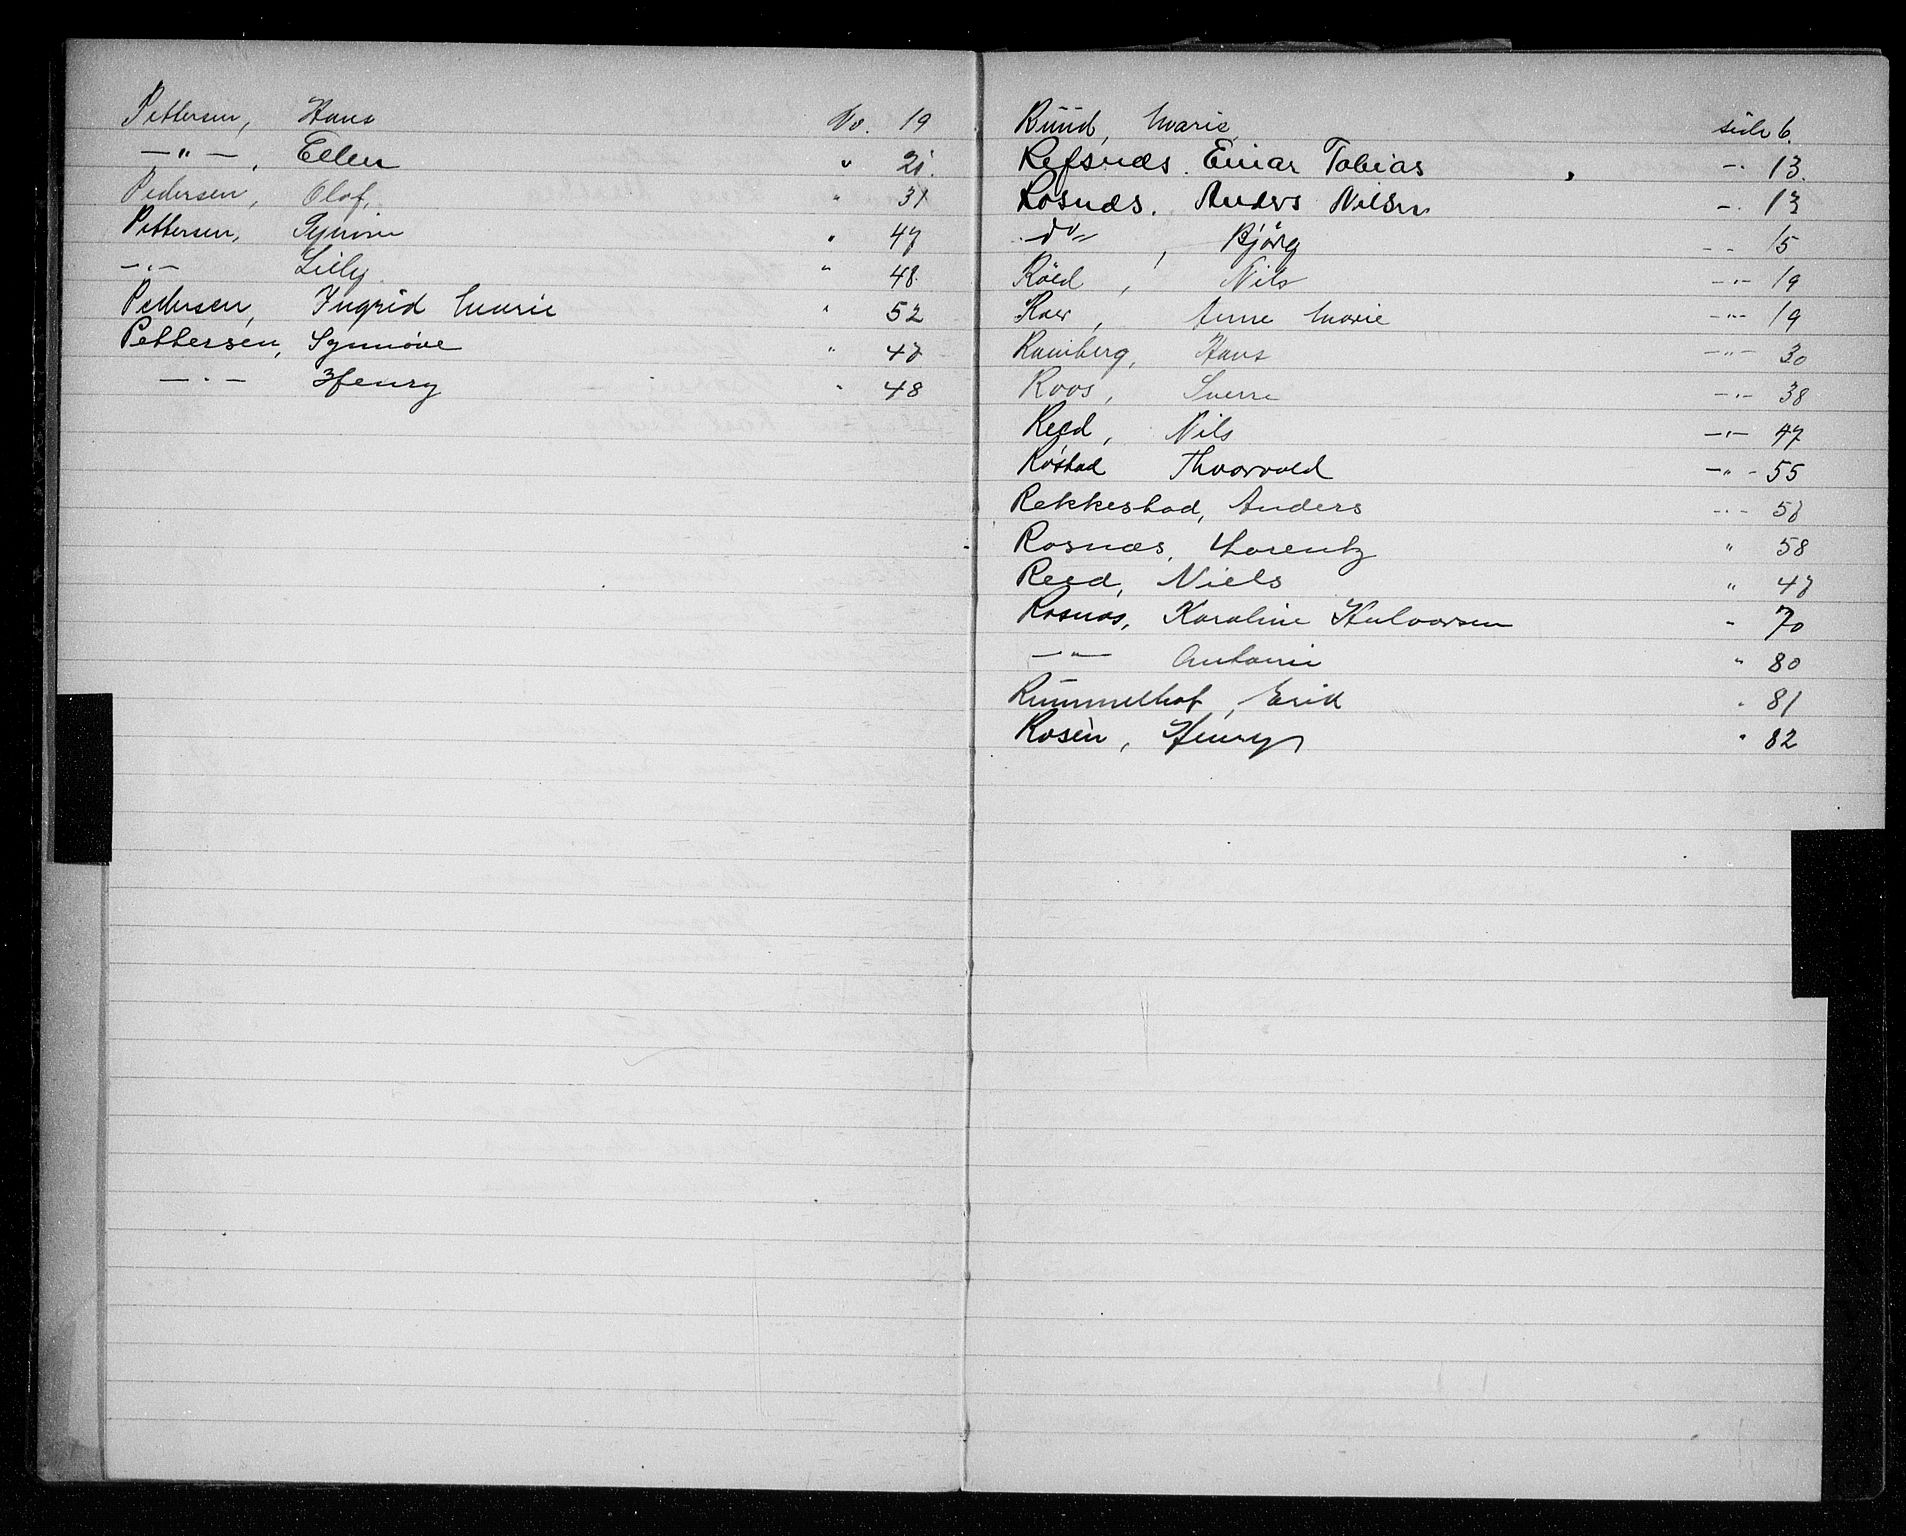 Pettersen, Hans No. 19
—"—, Ellen " 21.
Pedersen, Olaf, " 31
Pettersen, Synnöve " 47
—"— Lilly " 48
Pedersen, Ingrid Marie " 52
Pettersen, Synnöve " 47
—"— Henry " 48
Ruud, Marie, side 6.
Refsnæs. Einar Tobias —"— 13.
Rosnæs. Anders Nilsen —"— 13
do , Bjørg —"— 15
Röed, Nils —"— 19
Roer, Anne Marie —"— 19
Ramberg, Hans —"— 30
Roos, Sverre —"— 38
Reed, Nils —"— 47
Röstad Thorvald —"— 55
Rekkestad, Anders —"— 58
Rosnæs, Lorentz " 58
Reed, Niels " 47
Rosnæs, Karoline Halvorsen " 70
—"— Antonie " 80
Rummelhof, Erik " 81
Rosèn, Henry " 82